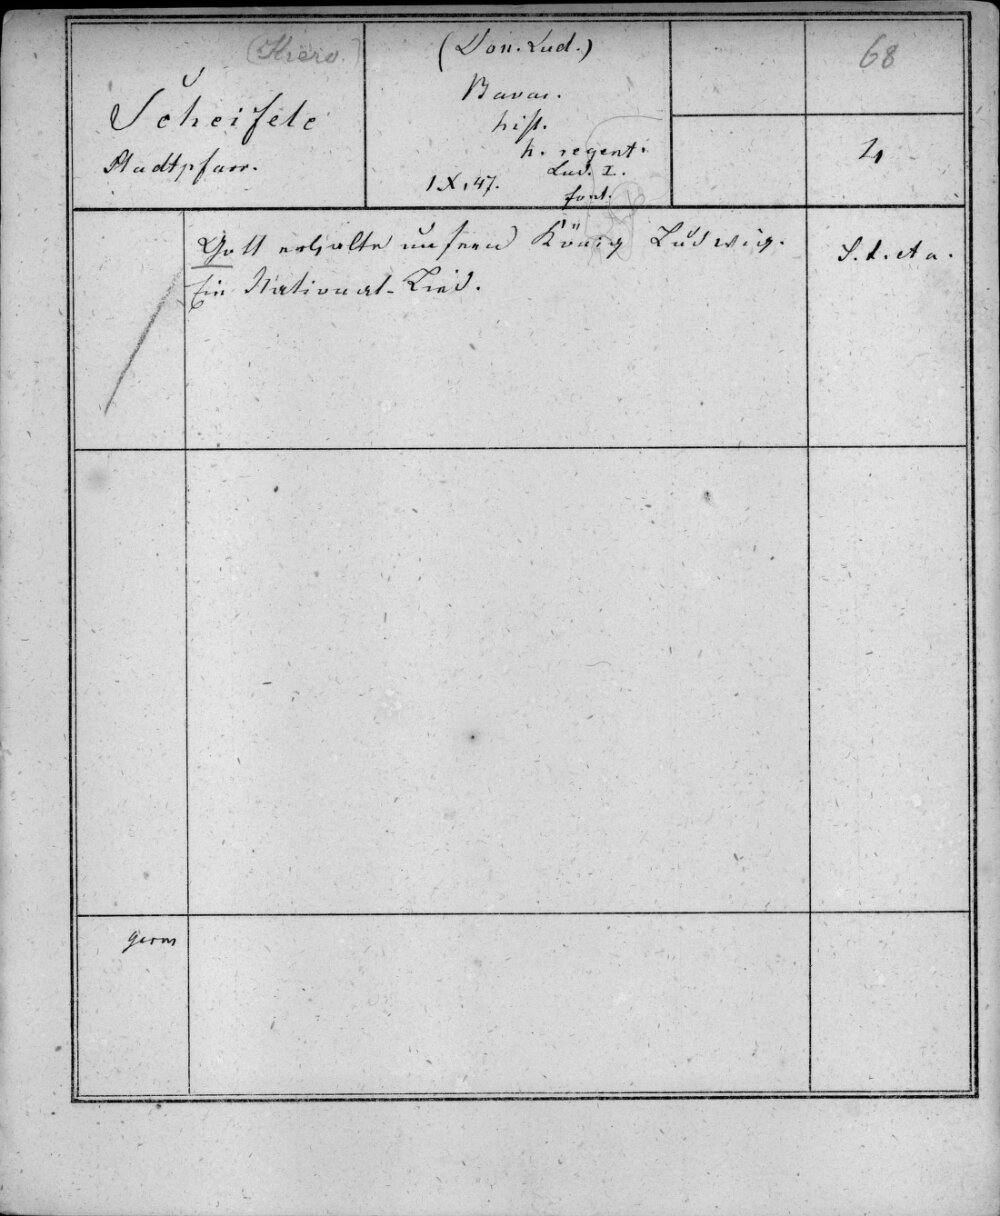 (Hiero.)
Scheifele
Stadtpfarr.
(Don. Lud.)
Bavar.
hist.
h. regent.
Lud. I.
1.X.47.
font.
68
4
Gott erhalte unsern König Ludwig.
Ein National-Lied.
S. l. et a.
germ